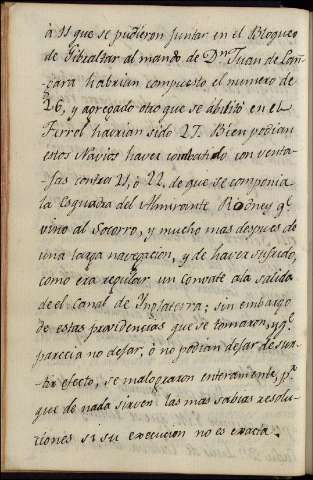 à 11 que se pudieron juntar en el Bloqueo
de Gibraltar al mando de Dn. Juan de Lan-
gara habrian compuesto el numero de
26, y agregado otro que se abilitó en el
Ferrol havrian sido 27. Bien podian
estos Navios haver combatido con venta-
jas contra 21, ò 22, de que se componia
la Esquadra del Almirante Rodney qe.
vino al Socorro, y mucho mas despues de
una larga navegacion, y de haver sufrido,
como era regular un convate ala salida
de el Canal de Inglaterra; sin embargo
de estas providencias que se tomaron, y qe.
parecia no dejar, ò no podian dejar de sur-
tir efecto, se malograron enteramente, pr.
que de nada sirven las mas sabias resolu-
ciones si su execucion no es exacta.